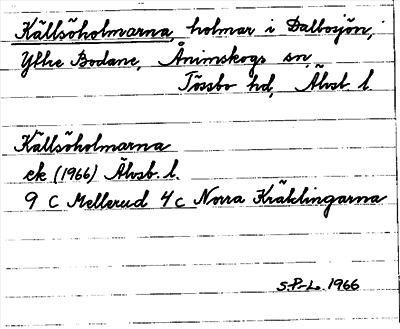 Källsöholmarna, holmar i Dalbosjön,
Yttre Bodane, Ånimskogs sn
Tössbo hd, Älvsb. l
Källsöholmarna
ek (1966) Älvsb. l.
9 C Mellerud 4c Norra Kräklingarna
S.P-L. 1966